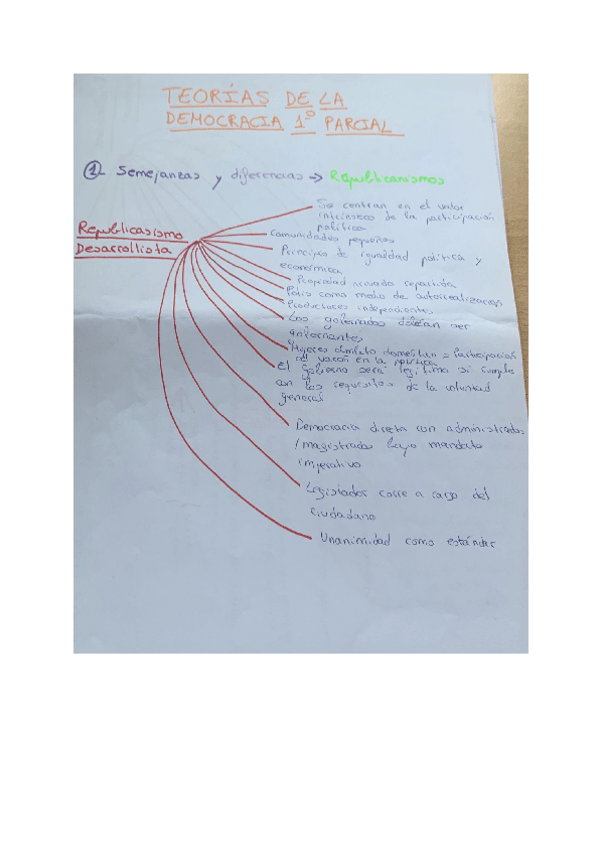 TEORÍAS DE LA
DEMOCRACIA 1º PARCIAL
1- Semejanzas y diferencias → Republicanismos
Republicanismo
Desarrollista
Se centran en el valor
intrínseco de la participación
política
Comunidades pequeñas
Principio de igualdad política y
económica
Propiedad privada repartida
Polis como medio de autorrealización
Productores independientes
Los gobernados deben ser
gobernantes
Mujeres ámbito doméstico = Participación
del varón en la política
El gobierno será legítimo si cumple
con los requisitos de la voluntad
general
Democracia directa con administrados
/magistrados bajo mandato
imperativo
corre a cargo del
ciudadano
Unanimidad como estándar